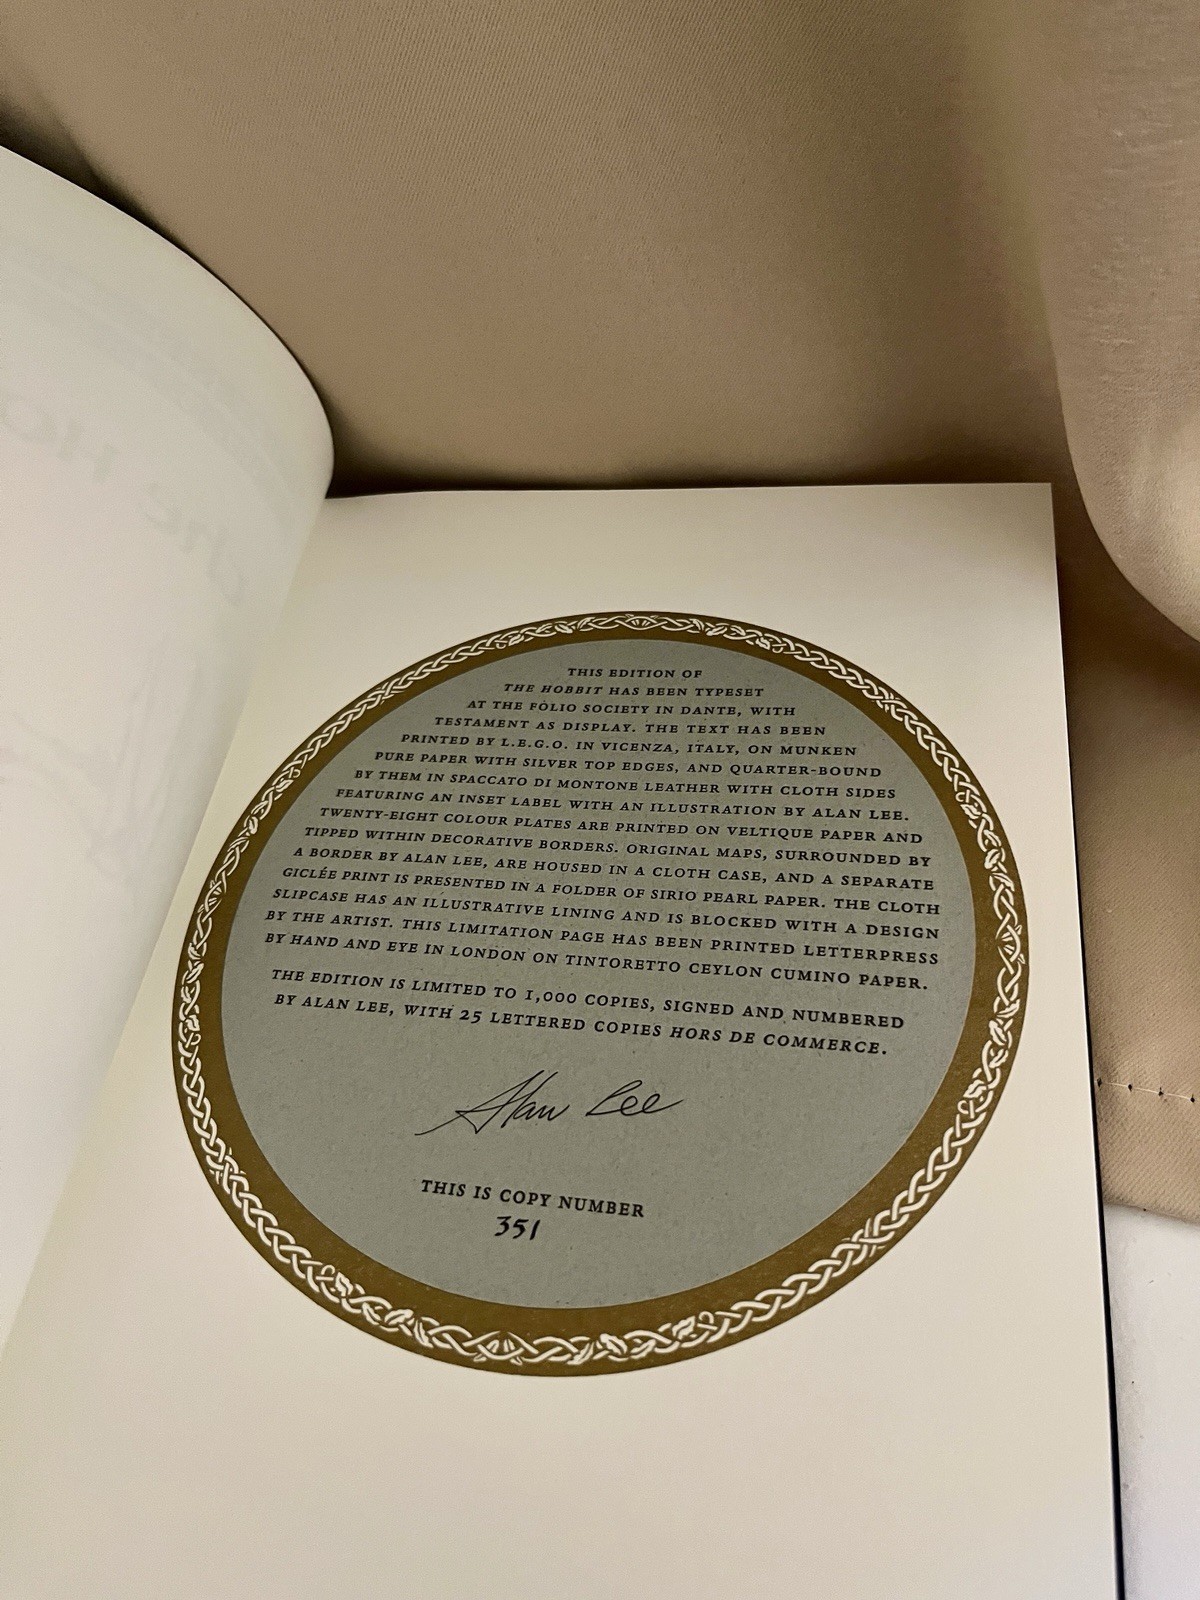 THIS EDITION OF
THE HOBBIT HAS BEEN TYPESET
AT THE FOLIO SOCIETY IN DANTE, WITH
TESTAMENT AS DISPLAY. THE TEXT HAS BEEN
PRINTED BY L.E.G.O. IN VICENZA, ITALY, ON MUNKEN
PURE PAPER WITH SILVER TOP EDGES, AND QUARTER-BOUND
BY THEM IN SPACCATO DI MONTONE LEATHER WITH CLOTH SIDES
FEATURING AN INSET LABEL WITH AN ILLUSTRATION BY ALAN LEE.
TWENTY-EIGHT COLOUR PLATES ARE PRINTED ON VELTIQUE PAPER AND
TIPPED WITHIN DECORATIVE BORDERS. ORIGINAL MAPS, SURROUNDED BY
A BORDER BY ALAN LEE, ARE HOUSED IN A CLOTH CASE, AND A SEPARATE
GICLÉE PRINT IS PRESENTED IN A FOLDER OF SIRIO PEARL PAPER. THE CLOTH
SLIPCASE HAS AN ILLUSTRATIVE LINING AND IS BLOCKED WITH A DESIGN
BY THE ARTIST. THIS LIMITATION PAGE HAS BEEN PRINTED LETTERPRESS
BY HAND AND EYE IN LONDON ON TINTORETTO CEYLON CUMINO PAPER.
THE EDITION IS LIMITED TO 1,000 COPIES, SIGNED AND NUMBERED
BY ALAN LEE, WITH 25 LETTERED COPIES HORS DE COMMERCE.
Alan Lee
THIS IS COPY NUMBER
351